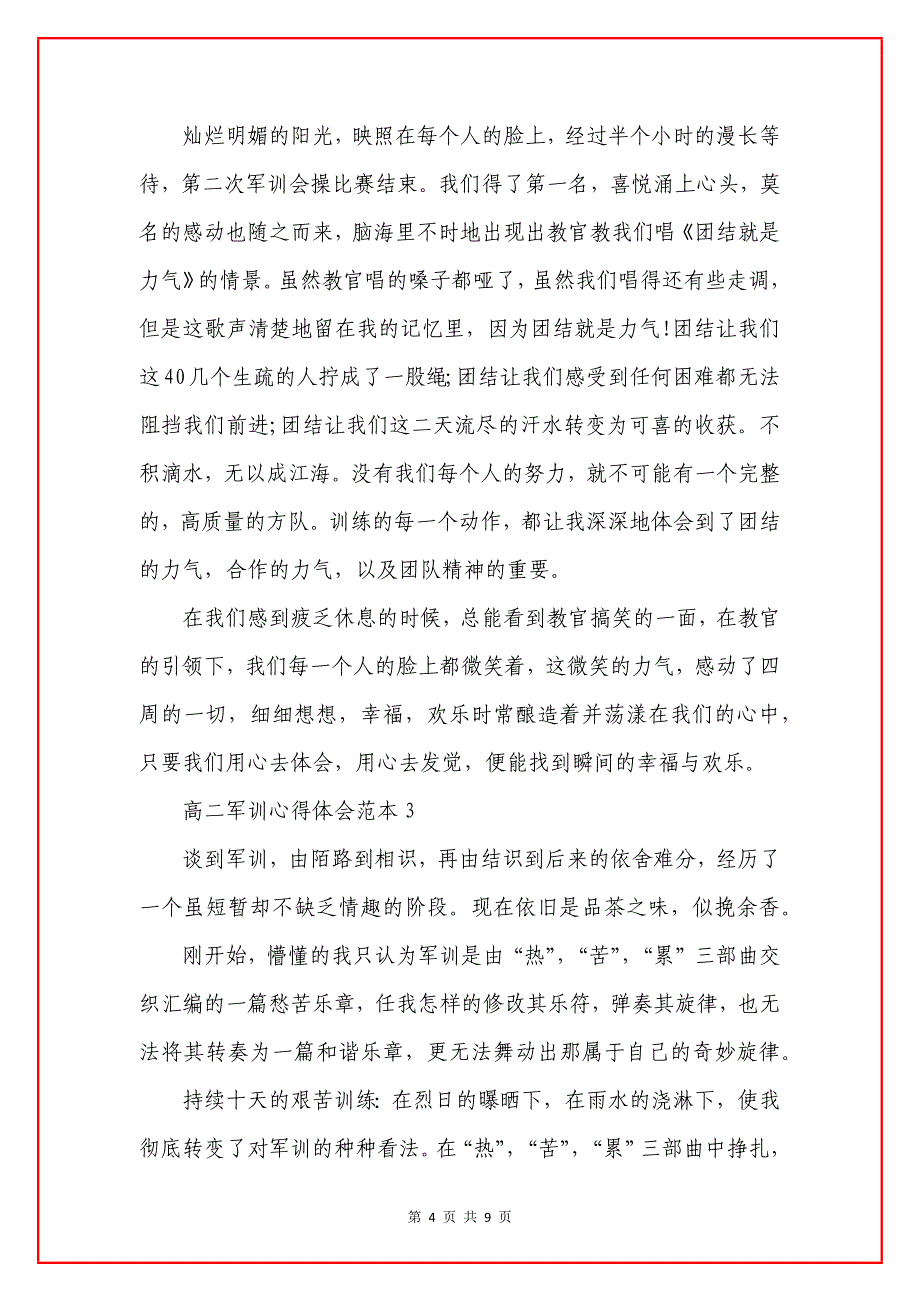 灿烂明媚的阳光，映照在每个人的脸上，经过半个小时的漫长等
待，第二次军训会操比赛结束。我们得了第一名，喜悦涌上心头，莫
名的感动也随之而来，脑海里不时地出现出教官教我们唱《团结就是
力气》的情景。虽然教官唱的嗓子都哑了，虽然我们唱得还有些走调，
但是这歌声清楚地留在我的记忆里，因为团结就是力气!团结让我们
这 40 几个生疏的人拧成了一股绳;团结让我们感受到任何困难都无法
阻挡我们前进;团结让我们这二天流尽的汗水转变为可喜的收获。不
积滴水，无以成江海。没有我们每个人的努力，就不可能有一个完整
的，高质量的方队。训练的每一个动作，都让我深深地体会到了团结
的力气，合作的力气，以及团队精神的重要。
在我们感到疲乏休息的时候，总能看到教官搞笑的一面，在教官
的引领下，我们每一个人的脸上都微笑着，这微笑的力气，感动了四
周的一切，细细想想，幸福，欢乐时常酿造着并荡漾在我们的心中，
只要我们用心去体会，用心去发觉，便能找到瞬间的幸福与欢乐。
高二军训心得体会范本 3
谈到军训，由陌路到相识，再由结识到后来的依舍难分，经历了
一个虽短暂却不缺乏情趣的阶段。现在依旧是品茶之味，似挽余香。
刚开始，懵懂的我只认为军训是由“热”，“苦”，“累”三部曲交
织汇编的一篇愁苦乐章，任我怎样的修改其乐符，弹奏其旋律，也无
法将其转奏为一篇和谐乐章，更无法舞动出那属于自己的奇妙旋律。
持续十天的艰苦训练:在烈日的曝晒下，在雨水的浇淋下，使我
彻底转变了对军训的种种看法。在“热”，“苦”，“累”三部曲中挣扎，
第 4 页 共 9 页